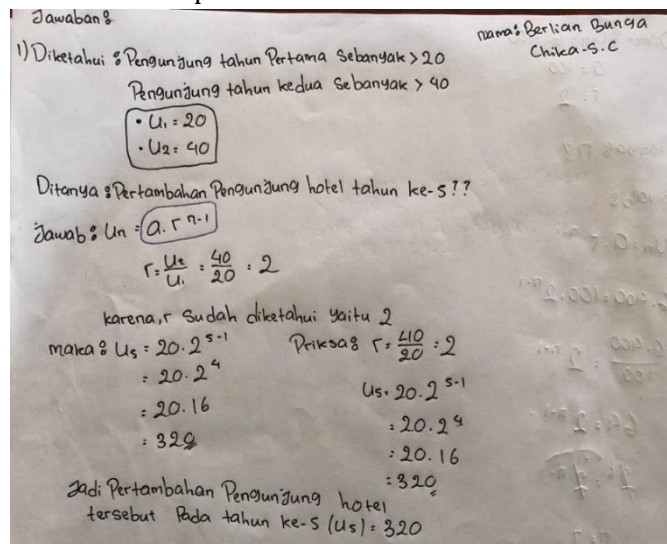 Jawaban :
nama : Berlian Bunga
Chika.S.C
1) Diketahui : Pengunjung tahun Pertama Sebanyak > 20
Pengunjung tahun kedua Sebanyak > 40
• U₁ = 20
• U₂ = 40
Ditanya : Pertambahan Pengunjung hotel tahun ke-5 ??
Jawab : Un = a. r ⁿ⁻¹
r = U₂/U₁ = 40/20 = 2
karena, r Sudah diketahui yaitu 2
maka : U₅ = 20. 2⁵⁻¹
= 20. 2⁴
= 20. 16
= 320
Priksa : r = 40/20 = 2
U₅ = 20. 2⁵⁻¹
= 20. 2⁴
= 20. 16
= 320
Jadi Pertambahan Pengunjung hotel
tersebut Pada tahun ke-5 (U₅) = 320